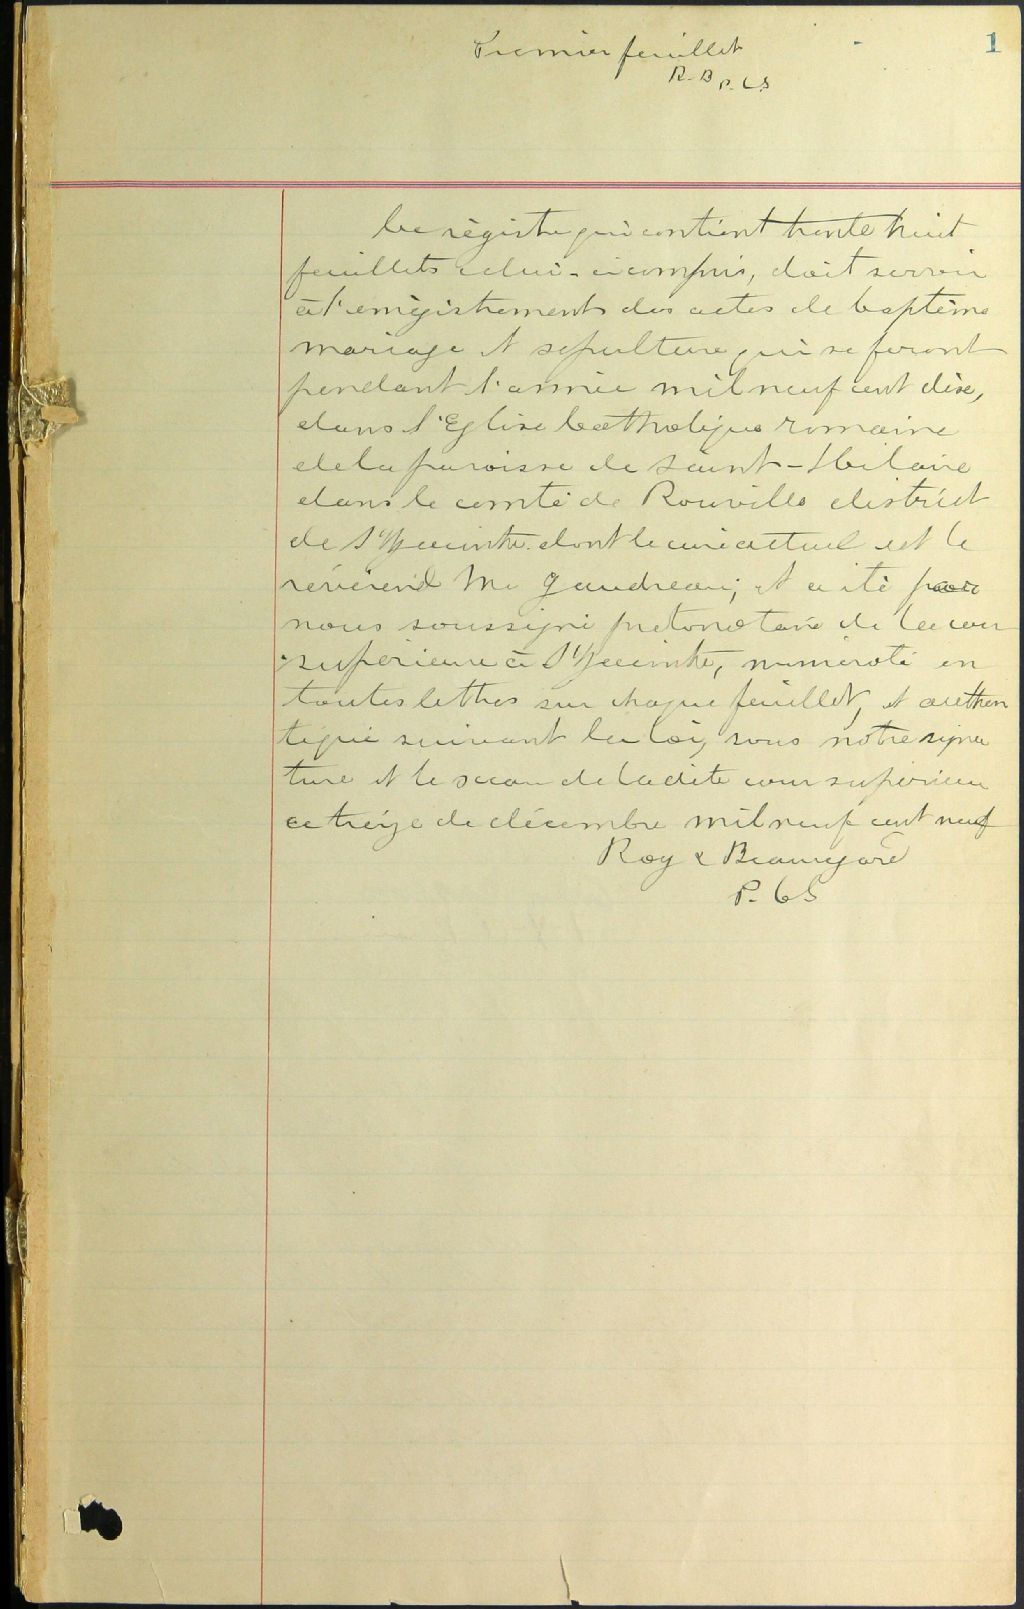 1
Premier feuillet
R. B P. C. S
Ce régistre qui contient trente huit
feuillets celui-ci compris, doit servir
à l'enrégistrement des actes de baptême
mariage et sepulture, qui se feront
pendant l'année mil neuf cent dixe,
dans l'Eglise Catholique romaine
de la paroisse de Saint-Hilaire
dans le comté de Rouville district
de St Hyacinthe dont le curé actuel est le
révérend Mr Gaudreau; et a été par
nous soussigné protonotaire de la cour
superieure à St Hyacinthe, numéroté en
toutes lettres sur chaque feuillet, et authen
tiqué suivant la loi, sous notre signa
ture et le sceau de la dite cour supérieure
ce treize de décembre mil neuf cent neuf
Roy & Beauregard
P. C S